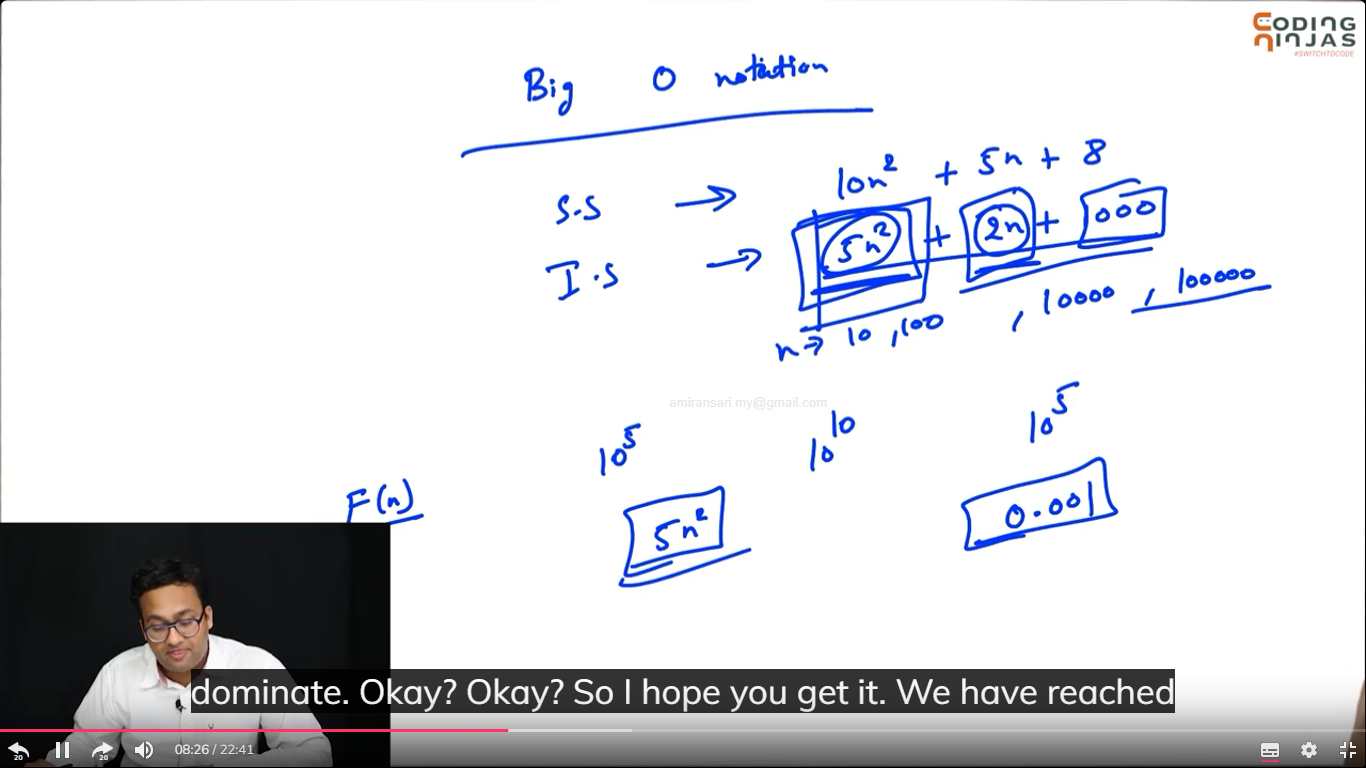 CODING
NINJAS
#SWITCHTOCODE
Big O notation
S.S → 10n² + 5n + 8
I.S → 5n² + 2n + 000
n → 10, 100, 10000, 100000
amiransari.my@gmail.com
10⁵ 10¹⁰ 10⁵
F(n) 5n² 0.001
dominate. Okay? Okay? So I hope you get it. We have reached
20 20 08:26 / 22:41